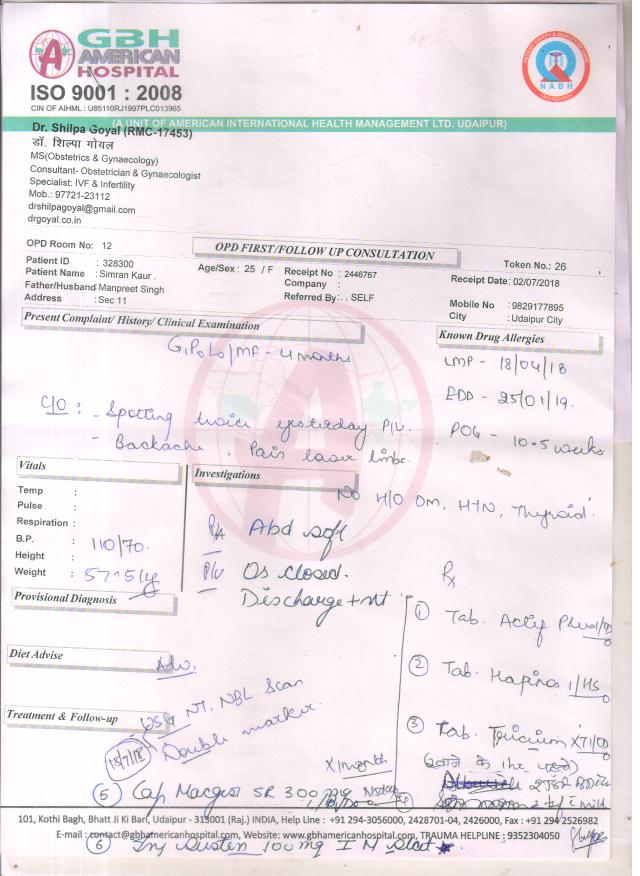 GBH
AMERICAN
HOSPITAL
ISO 9001 : 2008
CIN OF AIHML : U85110RJ1997PLC013965
NABH
(A UNIT OF AMERICAN INTERNATIONAL HEALTH MANAGEMENT LTD. UDAIPUR)
Dr. Shilpa Goyal (RMC-17453)
डॉ. शिल्पा गोयल
MS(Obstetrics & Gynaecology)
Consultant- Obstetrician & Gynaecologist
Specialist: IVF & Infertility
Mob.: 97721-23112
drshilpagoyal@gmail.com
drgoyal.co.in
OPD Room No: 12
OPD FIRST/FOLLOW UP CONSULTATION
Token No.: 26
Patient ID : 328300
Patient Name : Simran Kaur .
Father/Husband Manpreet Singh
Address : Sec 11
Age/Sex : 25 / F
Receipt No : 2446767
Company :
Referred By : . . SELF
Receipt Date: 02/07/2018
Mobile No : 9829177895
City : Udaipur City
Present Complaint/ History/ Clinical Examination
Known Drug Allergies
G1P0L0/MF - 4 months
LMP - 18/04/18
EDD - 25/01/19.
POG - 10.5 weeks
C/O : - Spotting twice yesterday P/V.
- Backache, Pain lower limbs.
Vitals
Investigations
No H/O DM, HTN, Thyroid.
Temp :
Pulse :
Respiration :
B.P. : 110/70.
Height :
Weight : 57.5 kg
P/A Abd soft
P/V Os closed.
Discharge +nt
Provisional Diagnosis
Rx
① Tab.
② Tab. 1/HS
③ Tab. X71/OD
Diet Advise
Adv.
Treatment & Follow-up
USG NT, NBL Scan
Double marker.
X 1 month
⑤ Cap SR 300 mg
⑥ Inj Susten 100 mg I M Stat
101, Kothi Bagh, Bhatt Ji Ki Bari, Udaipur - 313001 (Raj.) INDIA, Help Line : +91 294-3056000, 2428701-04, 2426000, Fax : +91 294 2526982
E-mail : contact@gbhamericanhospital.com, Website: www.gbhamericanhospital.com, TRAUMA HELPLINE : 9352304050